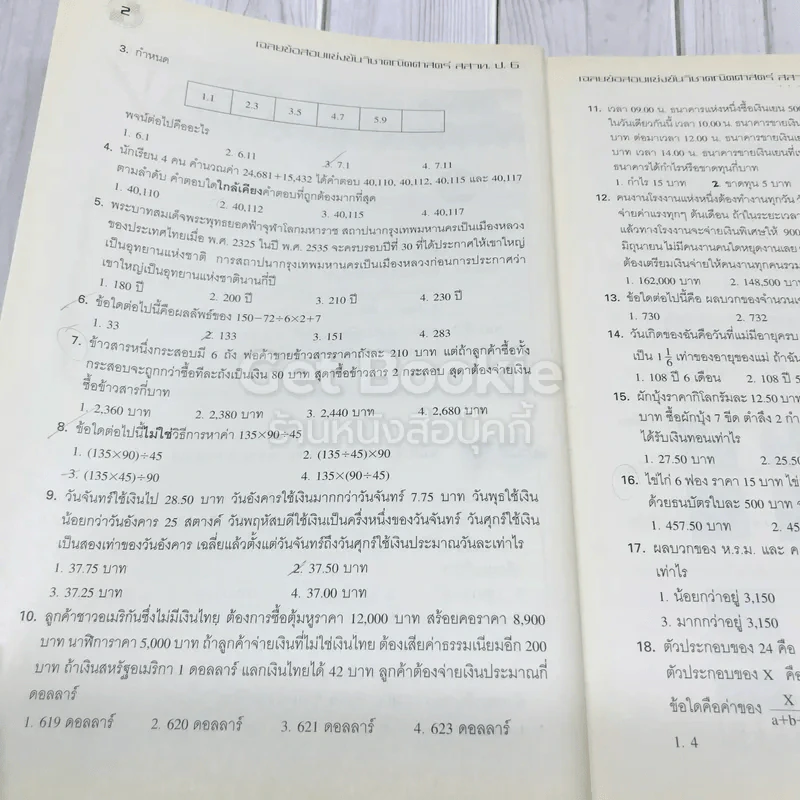 2
เฉลยข้อสอบแข่งขันวิชาคณิตศาสตร์ สสวท. ป. 6
3. กำหนด
1.1 2.3 3.5 4.7 5.9
พจน์ต่อไปคืออะไร
1. 6.1 2. 6.11 3. 7.1 4. 7.11
4. นักเรียน 4 คน คำนวณค่า 24,681+15,432 ได้คำตอบ 40,110, 40,112, 40,115 และ 40,117
ตามลำดับ คำตอบใดใกล้เคียงคำตอบที่ถูกต้องมากที่สุด
1. 40,110 2. 40,112 3. 40,115 4. 40,117
5. พระบาทสมเด็จพระพุทธยอดฟ้าจุฬาโลกมหาราช สถาปนากรุงเทพมหานครเป็นเมืองหลวง
ของประเทศไทยเมื่อ พ.ศ. 2325 ในปี พ.ศ. 2535 จะครบรอบปีที่ 30 ที่ได้ประกาศให้เขาใหญ่
เป็นอุทยานแห่งชาติ การสถาปนากรุงเทพมหานครเป็นเมืองหลวงก่อนการประกาศว่า
เขาใหญ่เป็นอุทยานแห่งชาตินานกี่ปี
1. 180 ปี 2. 200 ปี 3. 210 ปี 4. 230 ปี
6. ข้อใดต่อไปนี้คือผลลัพธ์ของ 150−72÷6×2+7
1. 33 2. 133 3. 151 4. 283
7. ข้าวสารหนึ่งกระสอบมี 6 ถัง พ่อค้าขายข้าวสารราคาถังละ 210 บาท แต่ถ้าลูกค้าซื้อทั้ง
กระสอบจะถูกกว่าซื้อทีละถังเป็นเงิน 80 บาท สุดาซื้อข้าวสาร 2 กระสอบ สุดาต้องจ่ายเงิน
ซื้อข้าวสารกี่บาท
1. 2,360 บาท 2. 2,380 บาท 3. 2,440 บาท 4. 2,680 บาท
8. ข้อใดต่อไปนี้ไม่ใช่วิธีการหาค่า 135×90÷45
1. (135×90)÷45 2. (135÷45)×90
3. (135×45)÷90 4. 135×(90÷45)
9. วันจันทร์ใช้เงินไป 28.50 บาท วันอังคารใช้เงินมากกว่าวันจันทร์ 7.75 บาท วันพุธใช้เงิน
น้อยกว่าวันอังคาร 25 สตางค์ วันพฤหัสบดีใช้เงินเป็นครึ่งหนึ่งของวันจันทร์ วันศุกร์ใช้เงิน
เป็นสองเท่าของวันอังคาร เฉลี่ยแล้วตั้งแต่วันจันทร์ถึงวันศุกร์ใช้เงินประมาณวันละเท่าไร
1. 37.75 บาท 2. 37.50 บาท
3. 37.25 บาท 4. 37.00 บาท
10. ลูกค้าชาวอเมริกันซึ่งไม่มีเงินไทย ต้องการซื้อตุ้มหูราคา 12,000 บาท สร้อยคอราคา 8,900
บาท นาฬิการาคา 5,000 บาท ถ้าลูกค้าจ่ายเงินที่ไม่ใช่เงินไทย ต้องเสียค่าธรรมเนียมอีก 200
บาท ถ้าเงินสหรัฐอเมริกา 1 ดอลลาร์ แลกเงินไทยได้ 42 บาท ลูกค้าต้องจ่ายเงินประมาณกี่
ดอลลาร์
1. 619 ดอลลาร์ 2. 620 ดอลลาร์ 3. 621 ดอลลาร์ 4. 623 ดอลลาร์
Get Bookie
ร้านหนังสือบุคกี้
เฉลยข้อสอบแข่งขันวิชาคณิตศาสตร์
11. เวลา 09.00 น. ธนาคารแห่งหนึ่งซื้อเงินเยน
ในวันเดียวกันนี้ เวลา 10.00 น. ธนาคารขายเงิน
บาท ต่อมาเวลา 12.00 น. ธนาคารขายเงิน
บาท เวลา 14.00 น. ธนาคารขายเงินเยนที่
ธนาคารได้กำไรหรือขาดทุนกี่บาท
1. กำไร 15 บาท 2. ขาดทุน 5 บาท
12. คนงานโรงงานแห่งหนึ่งต้องทำงานทุกวัน
จ่ายค่าแรงทุกๆ ต้นเดือน ถ้าในระยะเวลา
แล้วทางโรงงานจะจ่ายเงินพิเศษให้ 900
มิถุนายนไม่มีคนงานคนใดหยุดงานเลย
ต้องเตรียมเงินจ่ายให้คนงานทุกคนรวม
1. 162,000 บาท 2. 148,500 บาท
13. ข้อใดต่อไปนี้คือ ผลบวกของจำนวน
1. 730 2. 732
14. วันเกิดของฉันคือวันที่แม่มีอายุครบ
เป็น 1 1/6 เท่าของอายุของแม่ ถ้าฉัน
1. 108 ปี 6 เดือน 2. 108 ปี
15. ผักบุ้งราคากิโลกรัมละ 12.50 บาท
บาท ซื้อผักบุ้ง 7 ขีด ตำลึง 2
ได้รับเงินทอนเท่าไร
1. 27.50 บาท 2. 25.50
16. ไข่ไก่ 6 ฟอง ราคา 15 บาท ไข่
ด้วยธนบัตรใบละ 500 บาท
1. 457.50 บาท 2.
17. ผลบวกของ ห.ร.ม. และ ค
เท่าไร
1. น้อยกว่าอยู่ 3,150
3. มากกว่าอยู่ 3,150
18. ตัวประกอบของ 24 คือ
ตัวประกอบของ X คือ
ข้อใดคือค่าของ X/a+b+
1. 4